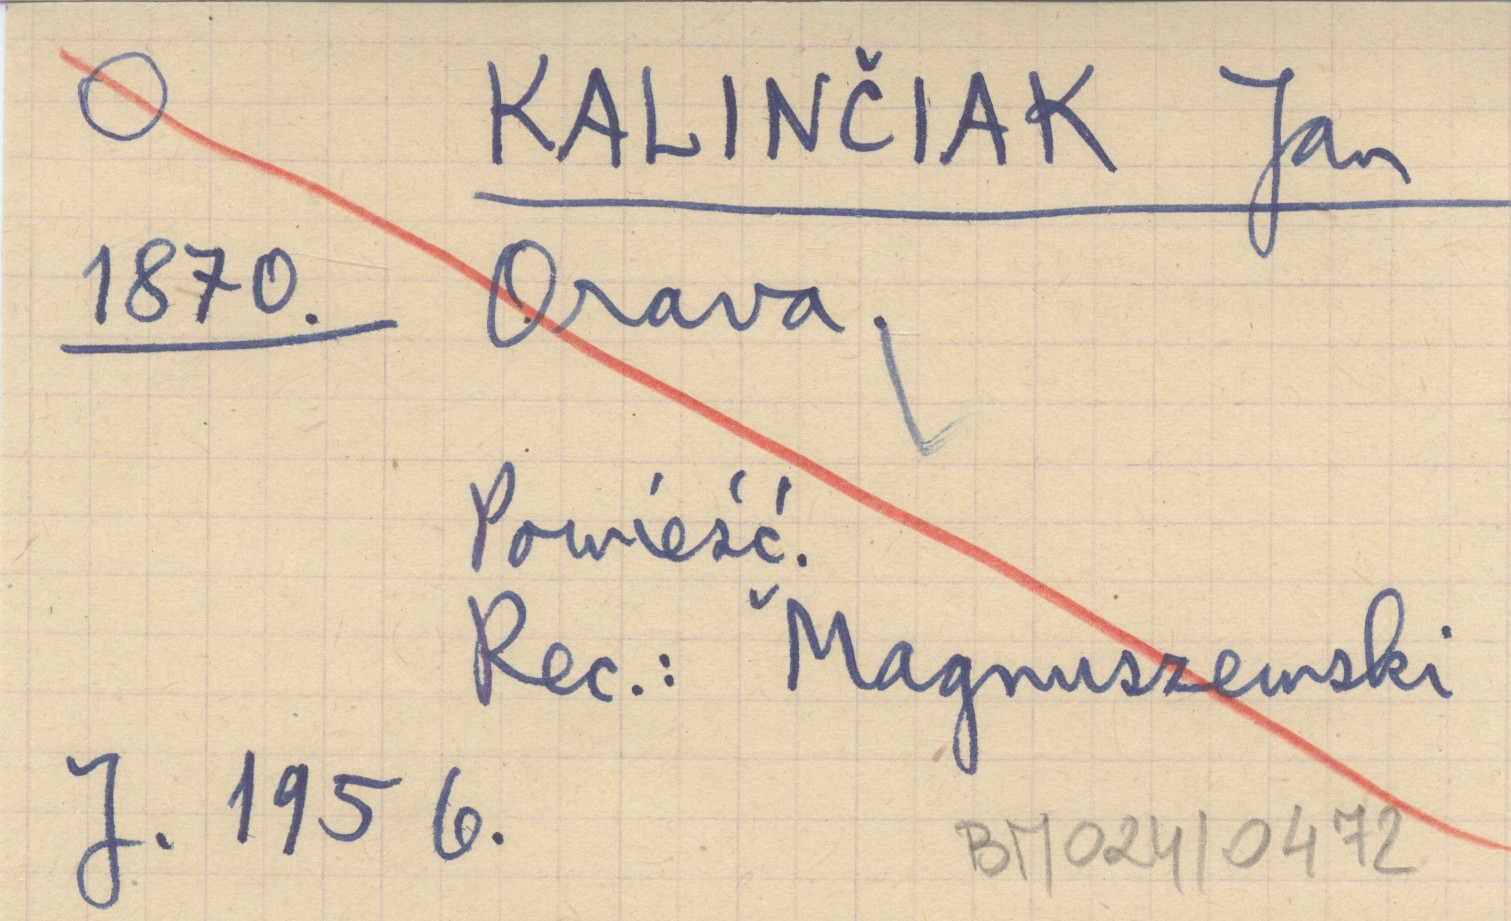 O KALINČIAK Jan
1870. Orava.
Powieść.
Rec.: Magnuszewski
J. 1956.
BM/024/0472